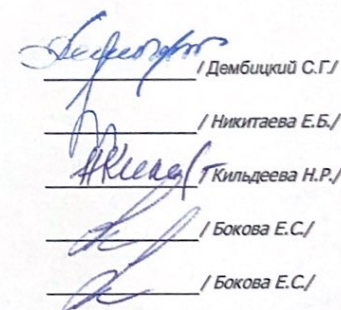 / Дембицкий С.Г./
/ Никитаева Е.Б./
/ Кильдеева Н.Р./
/ Бокова Е.С./
/ Бокова Е.С./